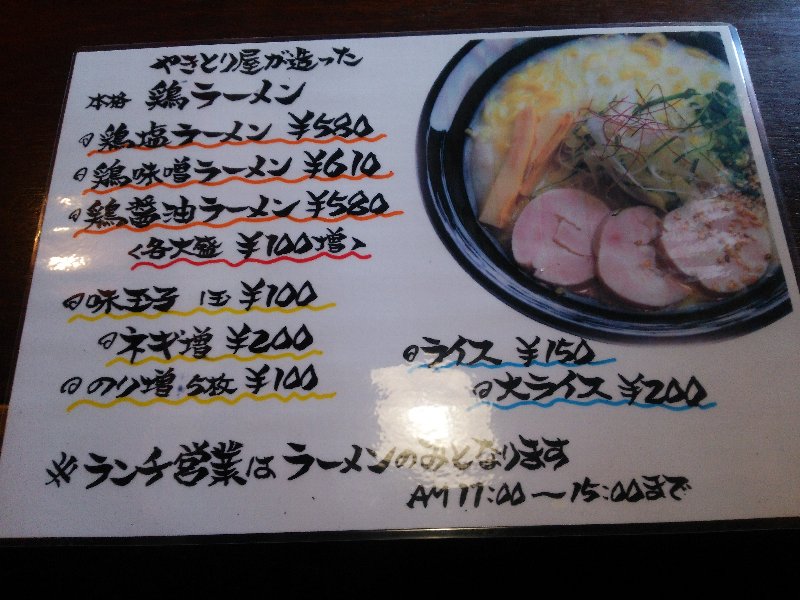 やきとり屋が造った
本格 鶏ラーメン
鶏塩ラーメン ¥580
鶏味噌ラーメン ¥610
鶏醤油ラーメン ¥580
<各大盛 ¥100増>
味玉子 1玉 ¥100
ネギ増 ¥200
のり増 5枚 ¥100
ライス ¥150
大ライス ¥200
※ランチ営業はラーメンのみとなります
AM11:00～15:00まで